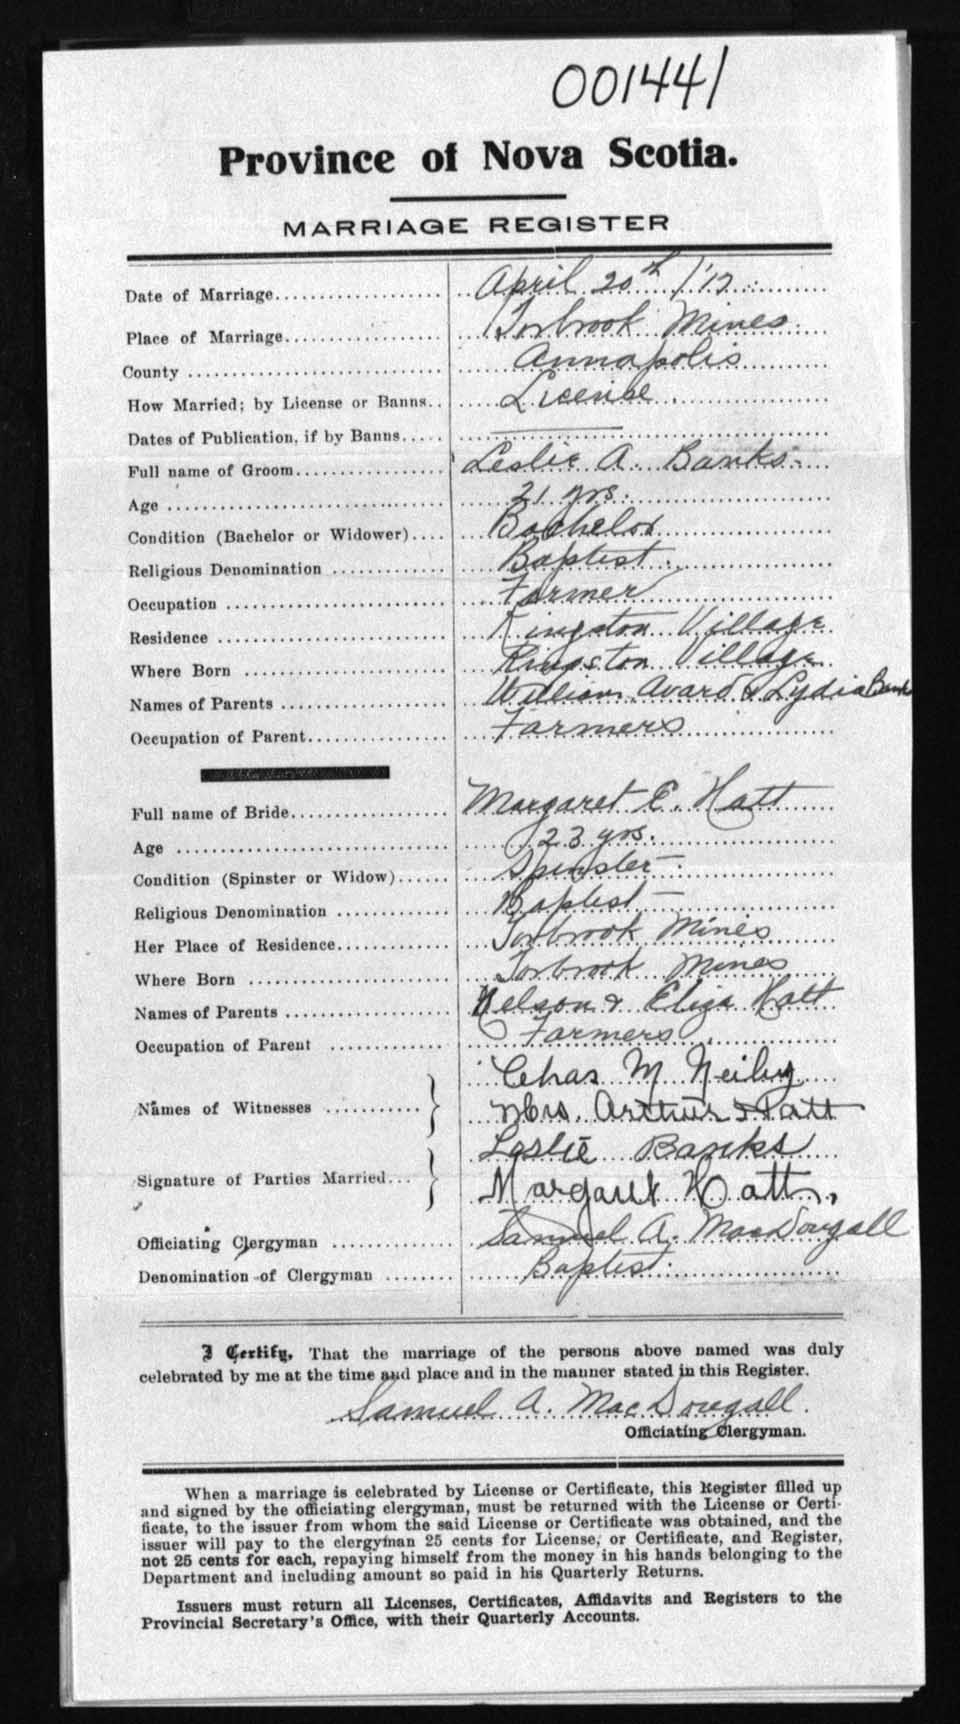 001441
Province of Nova Scotia.
MARRIAGE REGISTER
Date of Marriage.................... April 20th /'12
Place of Marriage.................... Torbrook Mines
County .................... Annapolis
How Married; by License or Banns.. License
Dates of Publication, if by Banns.....
Full name of Groom.................... Leslie A. Banks
Age .................... 21 yrs.
Condition (Bachelor or Widower).... Bachelor
Religious Denomination .............. Baptist
Occupation .................... Farmer
Residence .................... Kingston Village
Where Born .................... Kingston Village
Names of Parents .................... William Avard & Lydia Banks
Occupation of Parent.................... Farmers
Full name of Bride.................... Margaret E. Hatt
Age .................... 23 yrs.
Condition (Spinster or Widow)...... Spinster
Religious Denomination .............. Baptist
Her Place of Residence.............. Torbrook Mines
Where Born .................... Torbrook Mines
Names of Parents .................... Nelson & Eliza Hatt
Occupation of Parent .............. Farmers
Chas M Neily
Names of Witnesses ............
Mrs. Arthur Hatt
Leslie Banks
Signature of Parties Married...
Margaret Hatt.
Officiating Clergyman .............. Samuel A. MacDougall
Denomination of Clergyman ........ Baptist
I Certify, That the marriage of the persons above named was duly
celebrated by me at the time and place and in the manner stated in this Register.
Samuel A. MacDougall.
Officiating Clergyman.
When a marriage is celebrated by License or Certificate, this Register filled up
and signed by the officiating clergyman, must be returned with the License or Certi-
ficate, to the issuer from whom the said License or Certificate was obtained, and the
issuer will pay to the clergyman 25 cents for License, or Certificate, and Register,
not 25 cents for each, repaying himself from the money in his hands belonging to the
Department and including amount so paid in his Quarterly Returns.
Issuers must return all Licenses, Certificates, Affidavits and Registers to the
Provincial Secretary's Office, with their Quarterly Accounts.